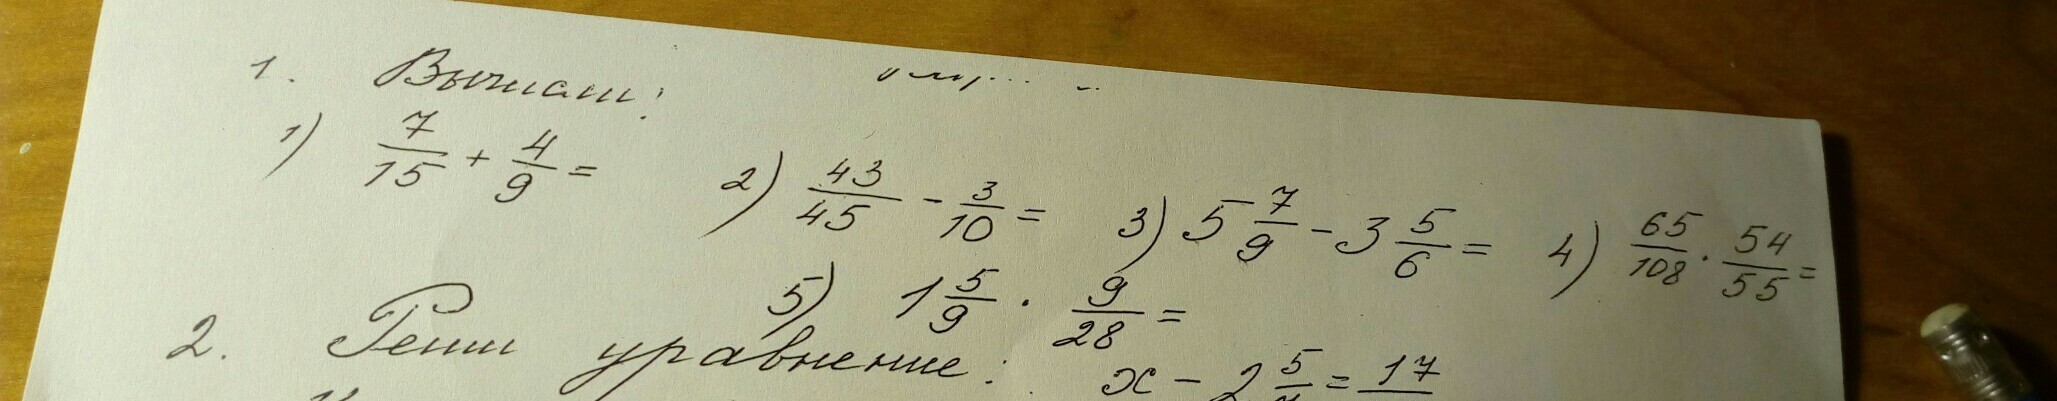 1. Вычисли:
1) 7/15 + 4/9 = 2) 43/45 - 3/10 = 3) 5 7/9 - 3 5/6 = 4) 65/108 · 54/55 =
5) 1 5/9 · 9/28 =
2. Реши уравнение: x - 2 5/ = 17/